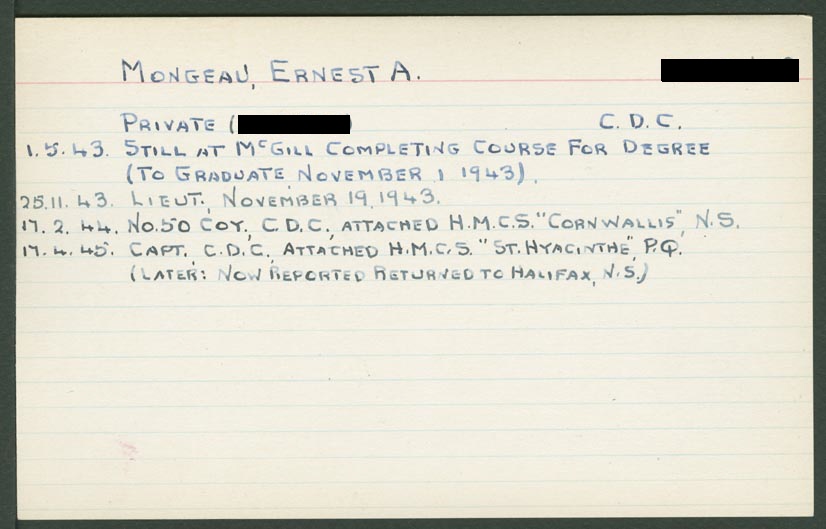 MONGEAU, ERNEST A.
PRIVATE ( ) C.D.C.
1.5.43. STILL AT McGILL COMPLETING COURSE FOR DEGREE
(TO GRADUATE NOVEMBER 1 1943).
25.11.43. LIEUT., NOVEMBER 19, 1943.
17.2.44. NO.50 COY., C.D.C., ATTACHED H.M.C.S. "CORNWALLIS", N.S.
17.4.45. CAPT., C.D.C., ATTACHED H.M.C.S. "ST. HYACINTHE", P.Q.
(LATER: NOW REPORTED RETURNED TO HALIFAX, N.S.)